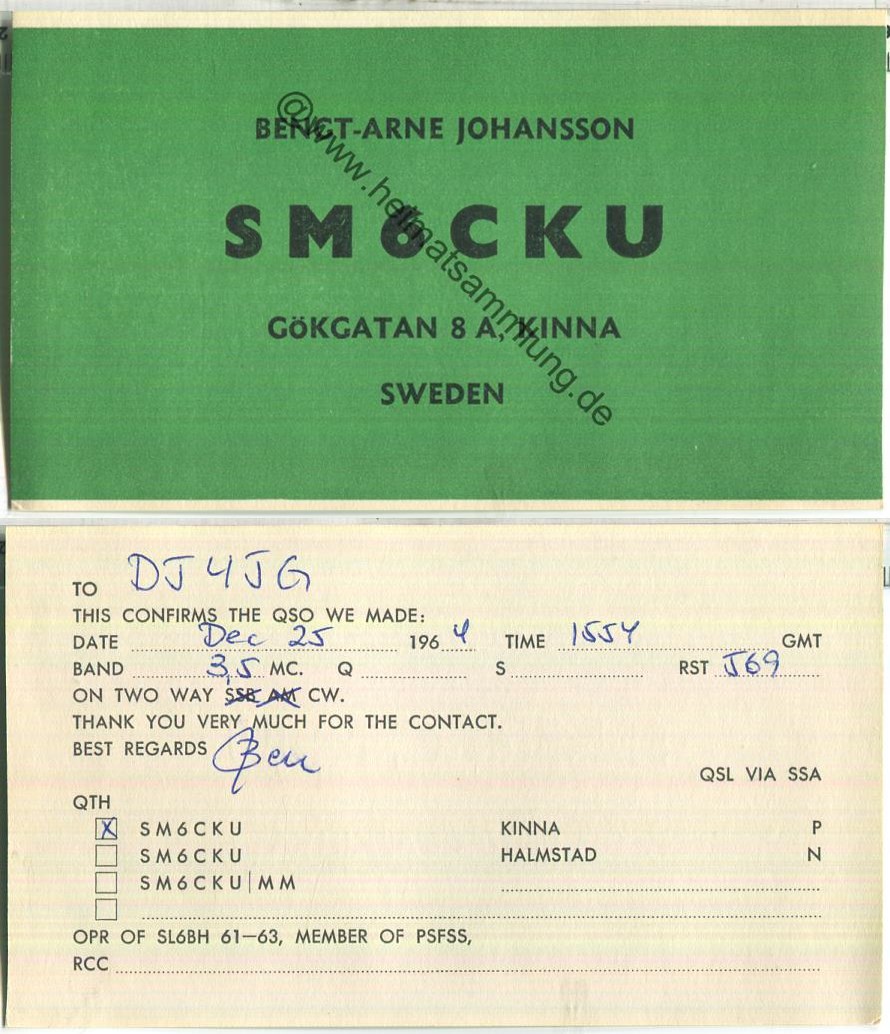 BENGT-ARNE JOHANSSON
SM6CKU
GÖKGATAN 8 A, KINNA
SWEDEN
@www.heimatsammlung.de
TO DJ4JG
THIS CONFIRMS THE QSO WE MADE:
DATE Dec 25 1964 TIME 1554 GMT
BAND 3,5 MC. Q S RST 569
ON TWO WAY SSB AM CW.
THANK YOU VERY MUCH FOR THE CONTACT.
BEST REGARDS Ben
QSL VIA SSA
QTH
X SM6CKU KINNA P
SM6CKU HALMSTAD N
SM6CKU/MM
OPR OF SL6BH 61—63, MEMBER OF PSFSS,
RCC